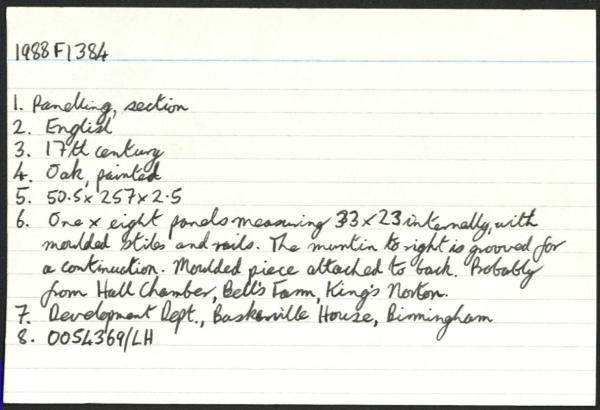 1988F1384
1. Panelling, section
2. English
3. 17th century
4. Oak, painted
5. 50.5 x 257 x 2.5
6. One x eight panels measuring 33 x 23 internally, with
moulded stiles and rails. The muntin to right is grooved for
a continuation. Moulded piece attached to back. Probably
from Hall Chamber, Bell's Farm, King's Norton.
7. Development Dept., Baskerville House, Birmingham
8. 0054369/LH